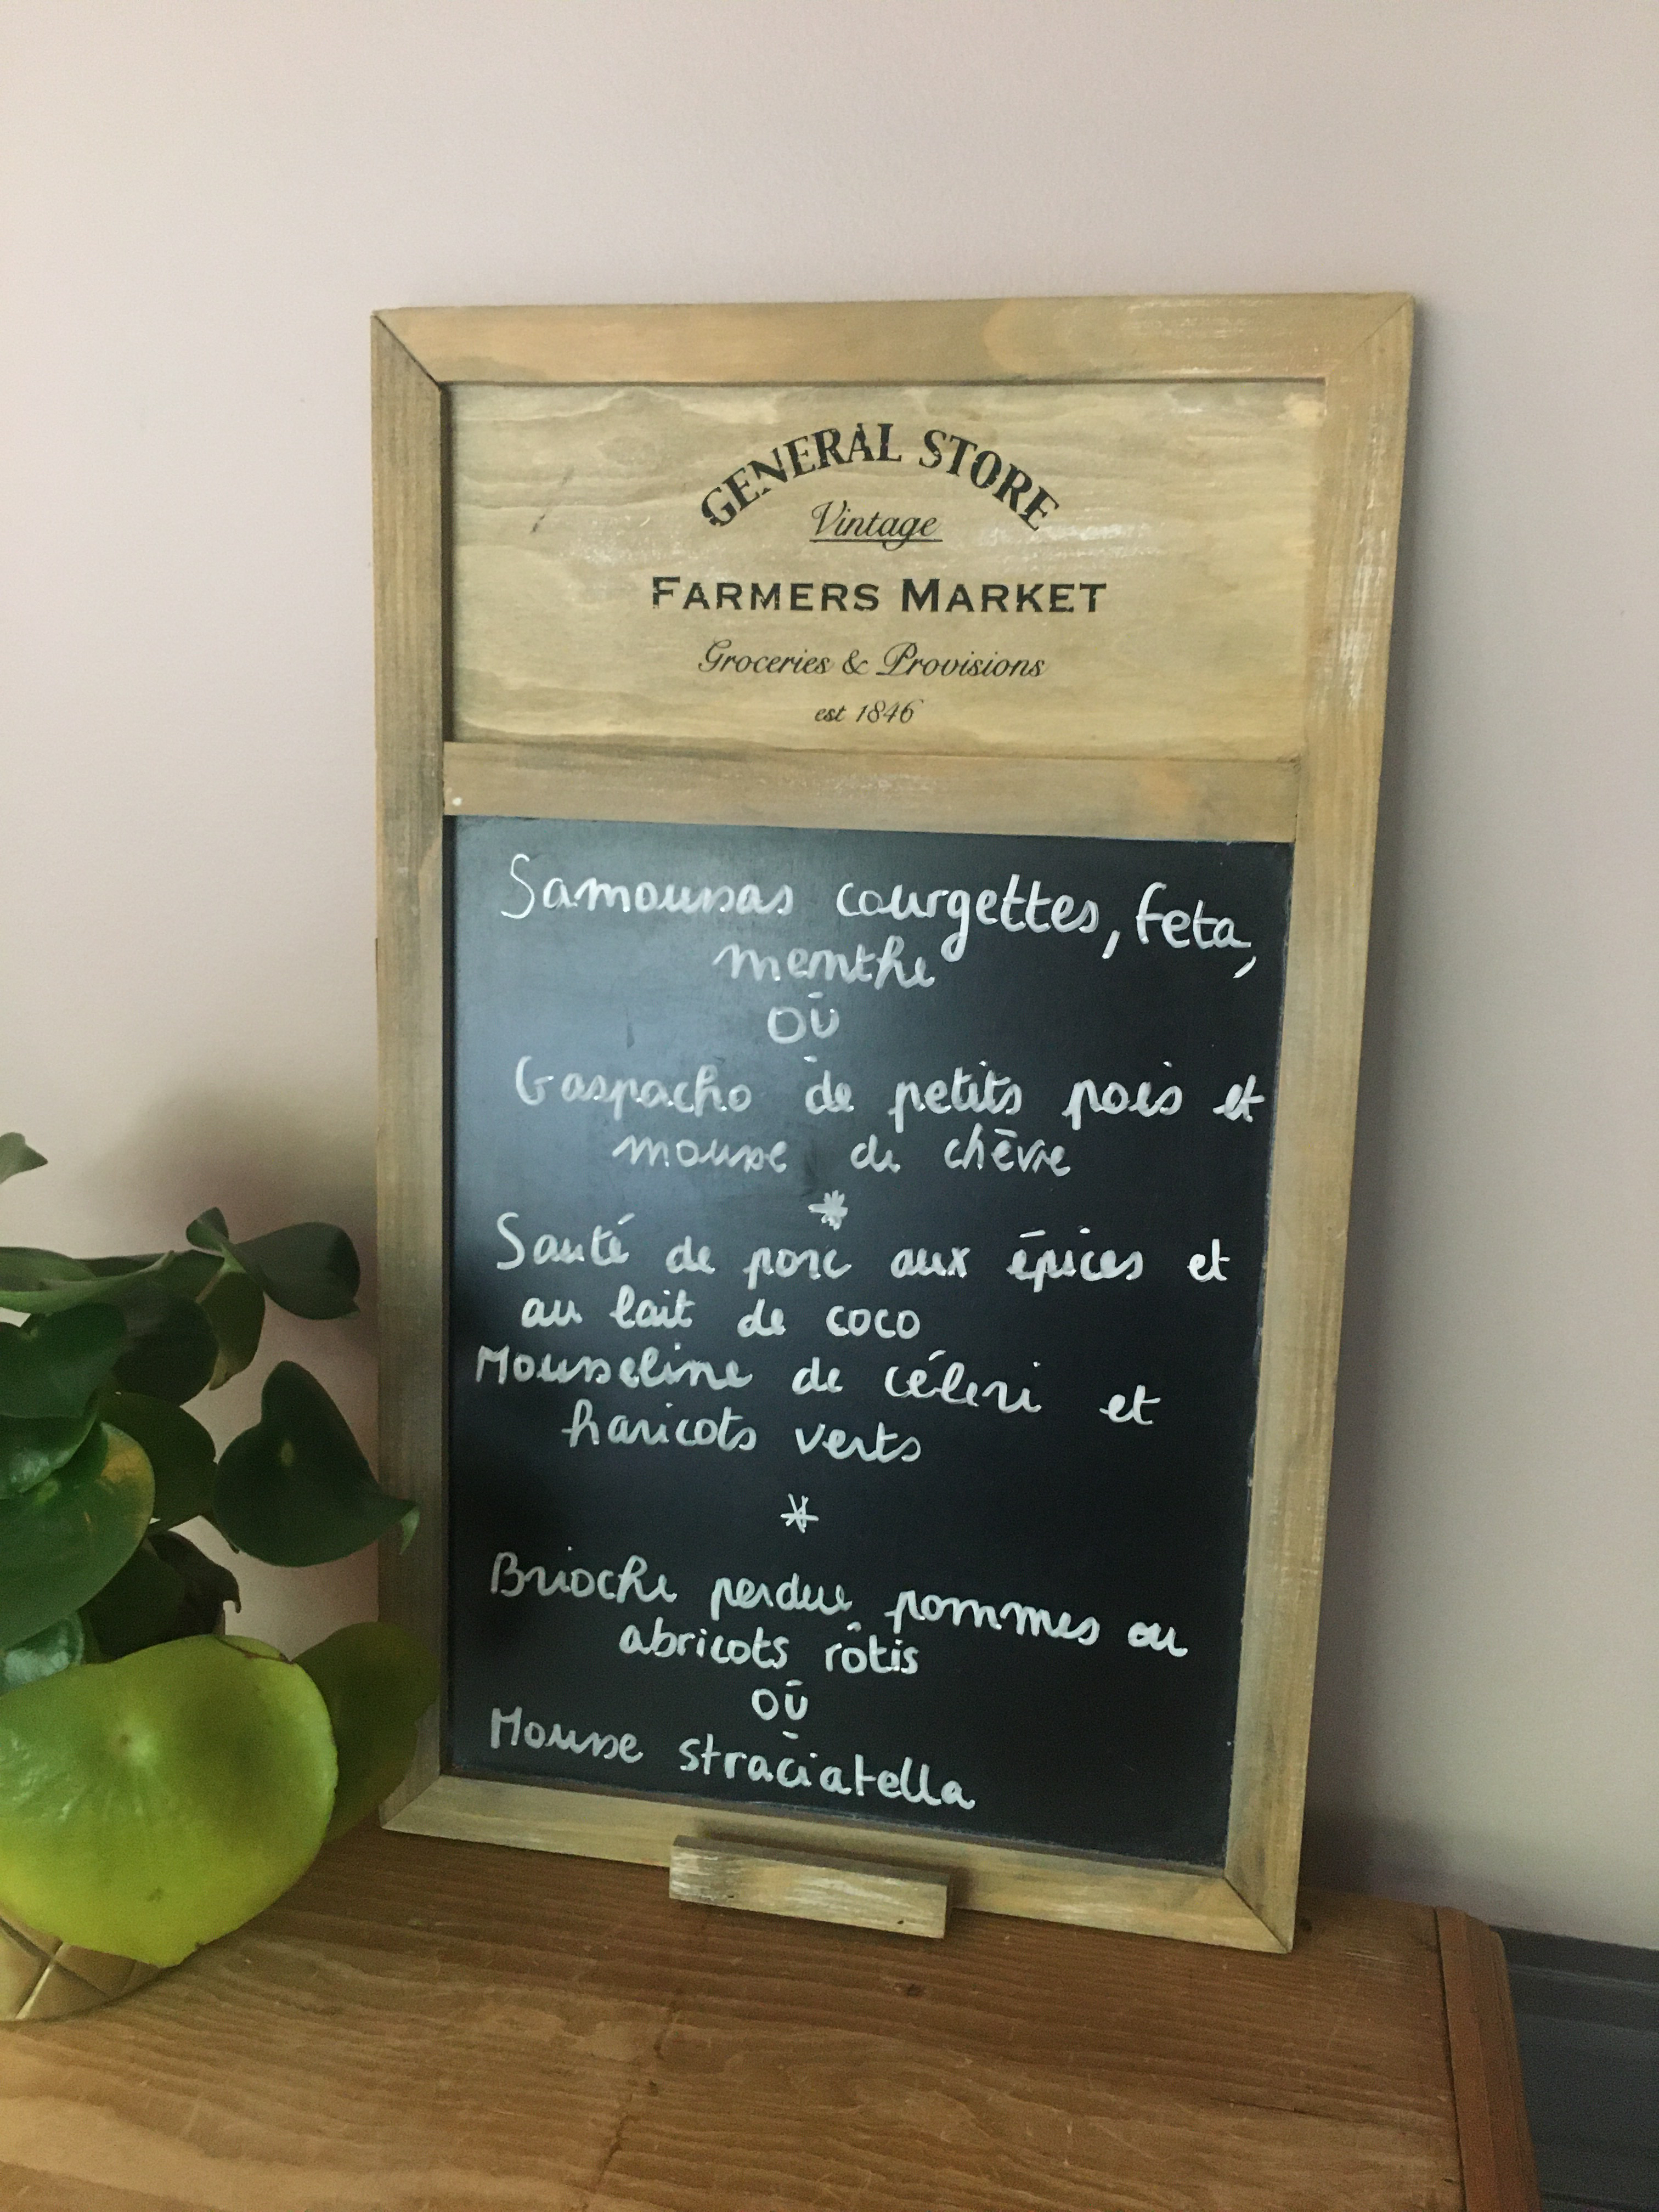 GENERAL STORE
Vintage
FARMERS MARKET
Groceries & Provisions
est 1846
Samoussas courgettes, feta,
menthe
OU
Gaspacho de petits pois et
mousse de chèvre
*
Sauté de porc aux épices et
au lait de coco
Mousseline de céleri et
haricots verts
*
Brioche perdue pommes ou
abricots rôtis
OU
Mousse straciatella